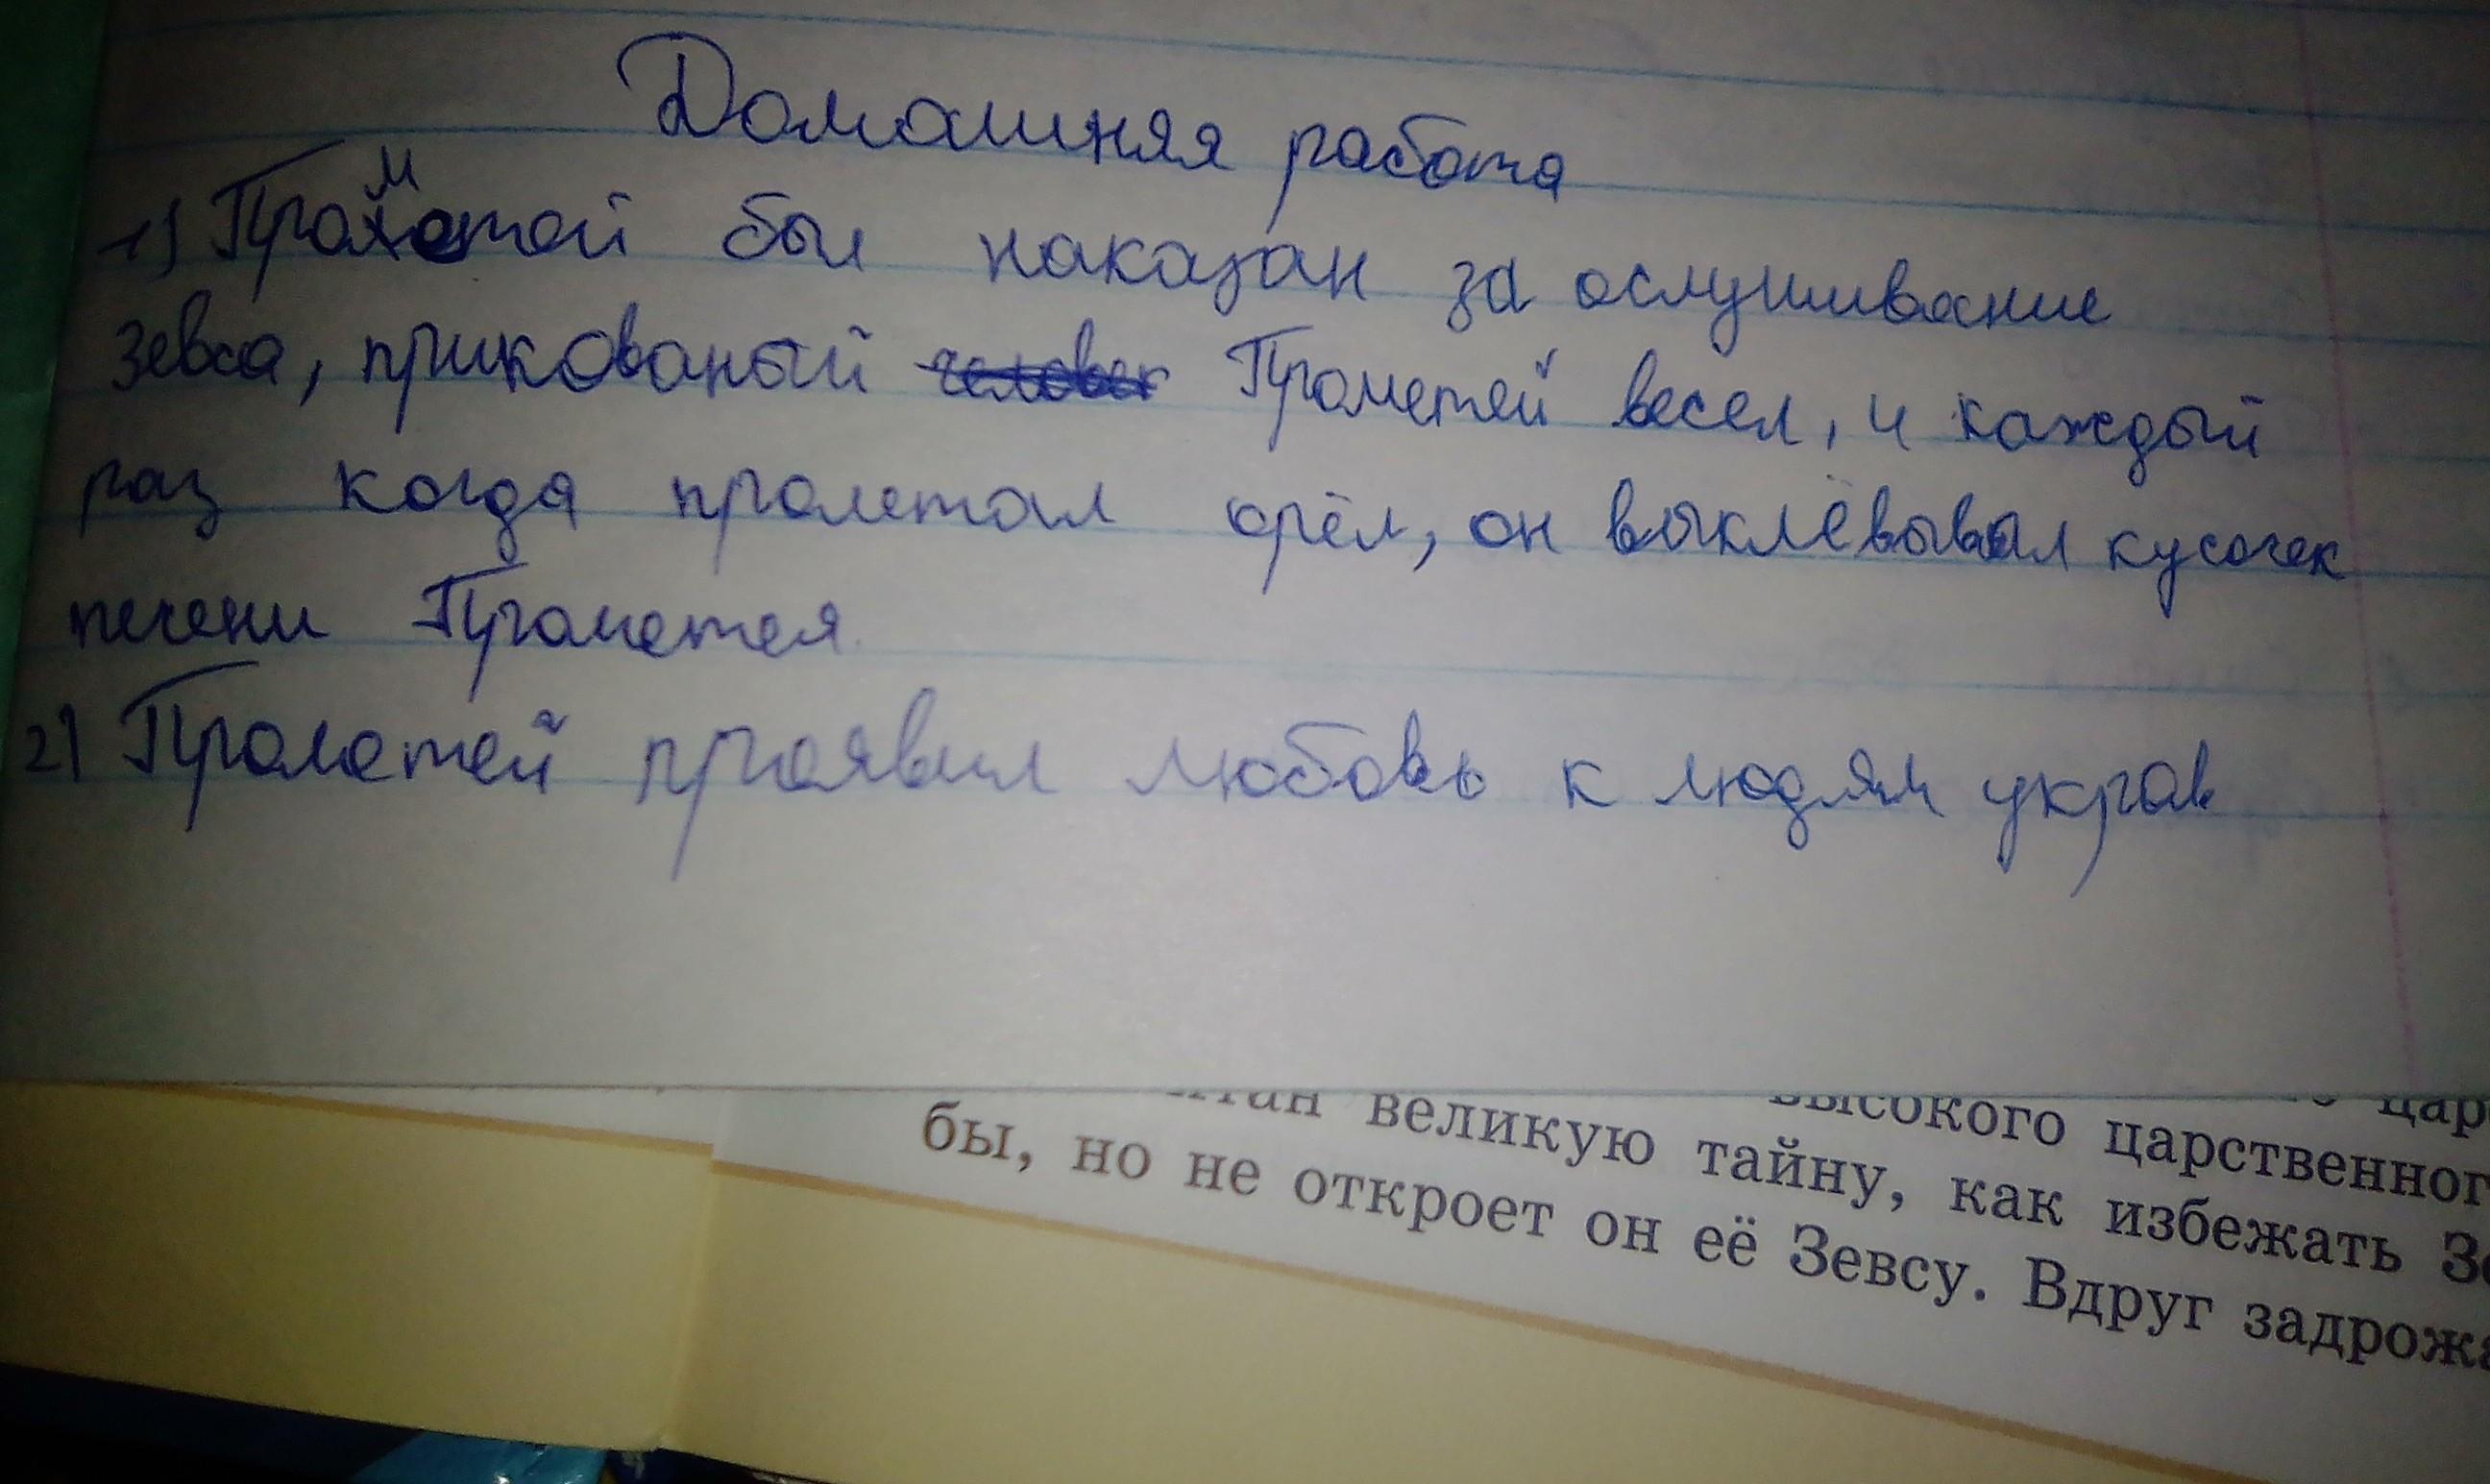 Домашняя работа
1) Прометей был наказан за ослушивание
Зевса, прикованый человек Прометей весел, и каждый
раз когда пролетал орёл, он выклёвывал кусочек
печени Прометея.
2) Прометей проявил любовь к людям украв
высокого царственног
великую тайну, как избежать
бы, но не откроет он её Зевсу. Вдруг задрож